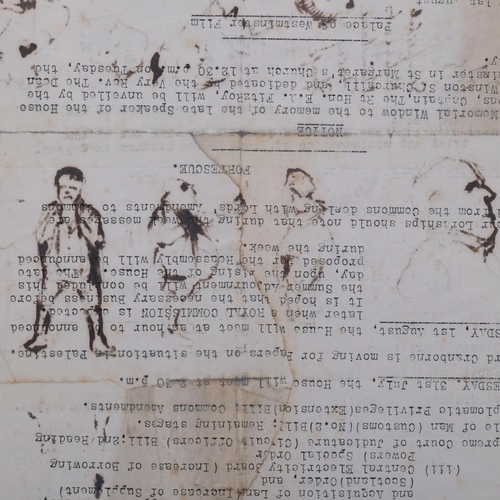 and Acquisition of Land(Increase of Supplement)
(Scotland)Order, and
(iii) Central Electricity Board (Increase of Borrowing
Powers) Special Order
preme Court of Judicature (Circuit Officers) Bill;2nd Reading
le of Man (Customs)(No.2)Bill; Remaining stages.
plomatic Privileges(Extension)Bill; Commons Amendments.
ESDAY, 31st July, the House will meet at 2-30 p.m.
rd Cranborne is moving for Papers on the situation in Palestine.
SDAY, 1st August, the House will meet at an hour to be announced
later when a ROYAL COMMISSION is expected.
It is hoped that the necessary Business before
the Summer Adjournment will be concluded this
day, upon the rising of the House. The date
proposed for the Reassembly will be announced
during the week.
ur Lordships should note that during the week messages are
from the Commons dealing with Lords' Amendments to Commons
FORTESCUE.
NOTICE
Memorial Window to the memory of the late Speaker of the House
ons, Captain The Rt Hon. E.A. Fitzroy, will be unveiled by the
Winston S. Churchill, and dedicated by the Very Rev. The Dean
minster in St Margaret's Church at 12.30 p.m. on Tuesday, the
y.
Palace of Westminster Film
1st August